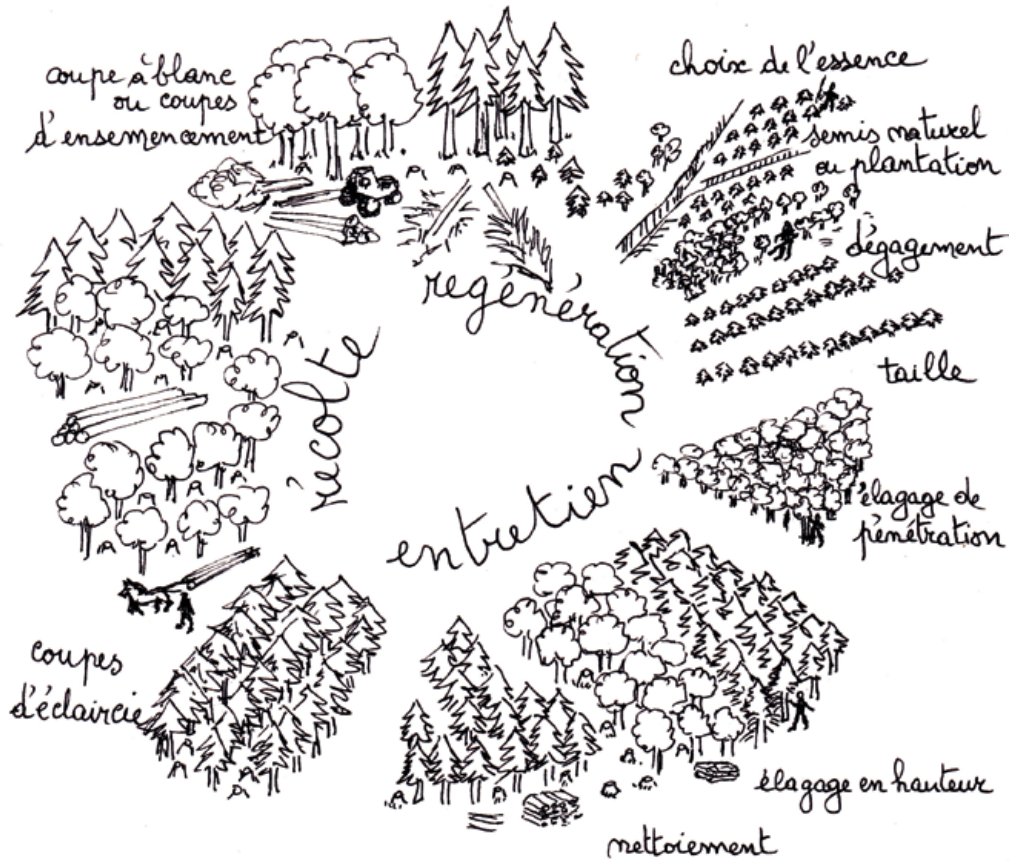 coupe à blanc
ou coupes
d'ensemencement
choix de l'essence
semis naturel
ou plantation
dégagement
taille
élagage de
pénétration
élagage en hauteur
nettoiement
coupes
d'éclaircie
régénération
entretien
récolte